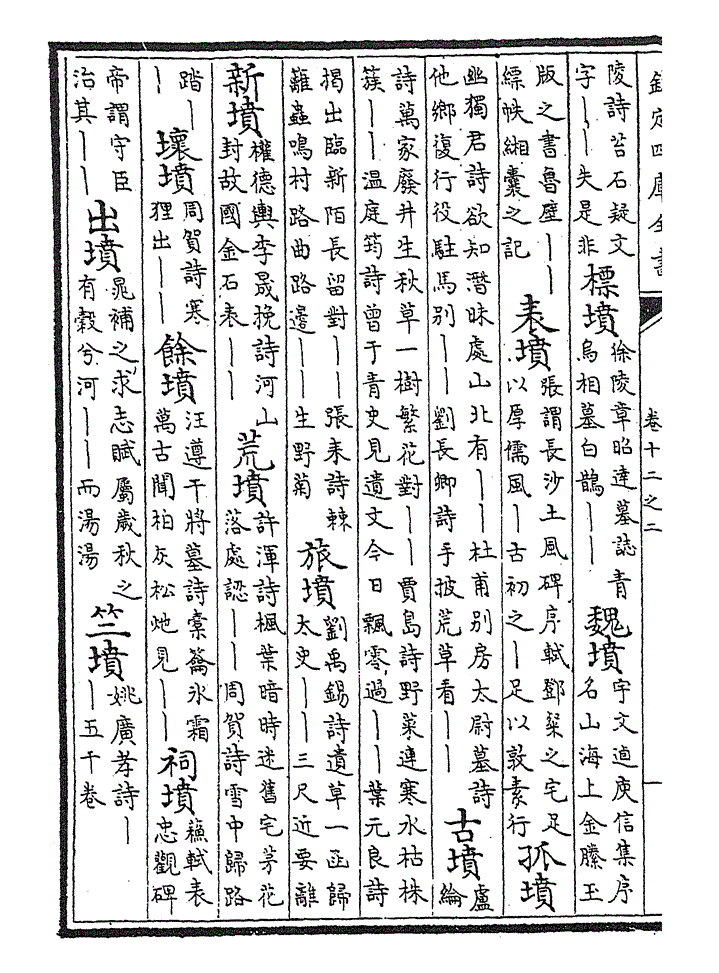 欽定四庫全書 卷十二之二 一
陵詩苔石疑文
字｜｜失是非
標墳
徐陵章昭達墓誌青
烏相墓白鵲｜｜
魏墳
宇文逌庾信集序
名山海上金縢玉
版之書魯壁｜｜
縹帙緗囊之記
表墳
張謂長沙土風碑序軾鄧粲之宅足
以厚儒風｜古初之｜足以敦素行
孤墳
幽獨君詩欲知潛昧處山北有｜｜杜甫別房太尉墓詩
他鄉復行役駐馬別｜｜劉長卿詩手披荒草看｜｜
古墳
盧
綸
詩萬家廢井生秋草一樹繁花對｜｜賈島詩野菜連寒水枯株
簇｜｜溫庭筠詩曾于青史見遺文今日飄零過｜｜葉元良詩
揭出臨新陌長留對｜｜張耒詩棘
籬蟲鳴村路曲路邊｜｜生野菊
旅墳
劉禹錫詩遺草一函歸
太史｜｜三尺近要離
新墳
權德輿李晟挽詩河山
封故國金石表｜｜
荒墳
許渾詩楓葉暗時迷舊宅茅花
落處認｜｜周賀詩雪中歸路
踏｜
｜
壞墳
周賀詩寒
狸出｜｜
餘墳
汪遵干將墓詩槖籥氷霜
萬古聞拍灰松地見｜｜
祠墳
蘇軾表
忠觀碑
帝謂守臣
治其｜｜
出墳
晁補之求志賦屬歲秋之
有穀兮河｜｜而湯湯
竺墳
姚廣孝詩｜
｜五千卷